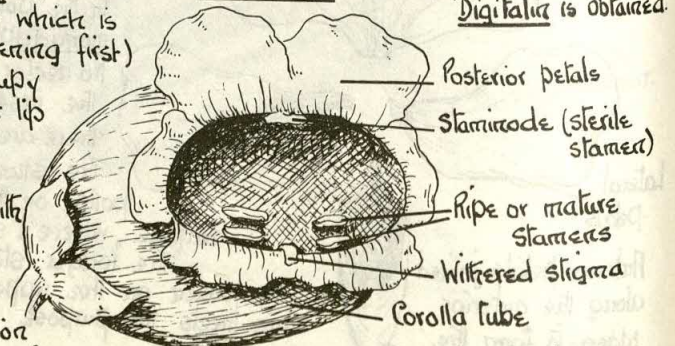 which is
ering first)
upy
lip
ith
ion
Digitalin is obtained.
Posterior petals
Staminode (sterile
stamen)
Ripe or mature
stamens
Withered stigma
Corolla tube